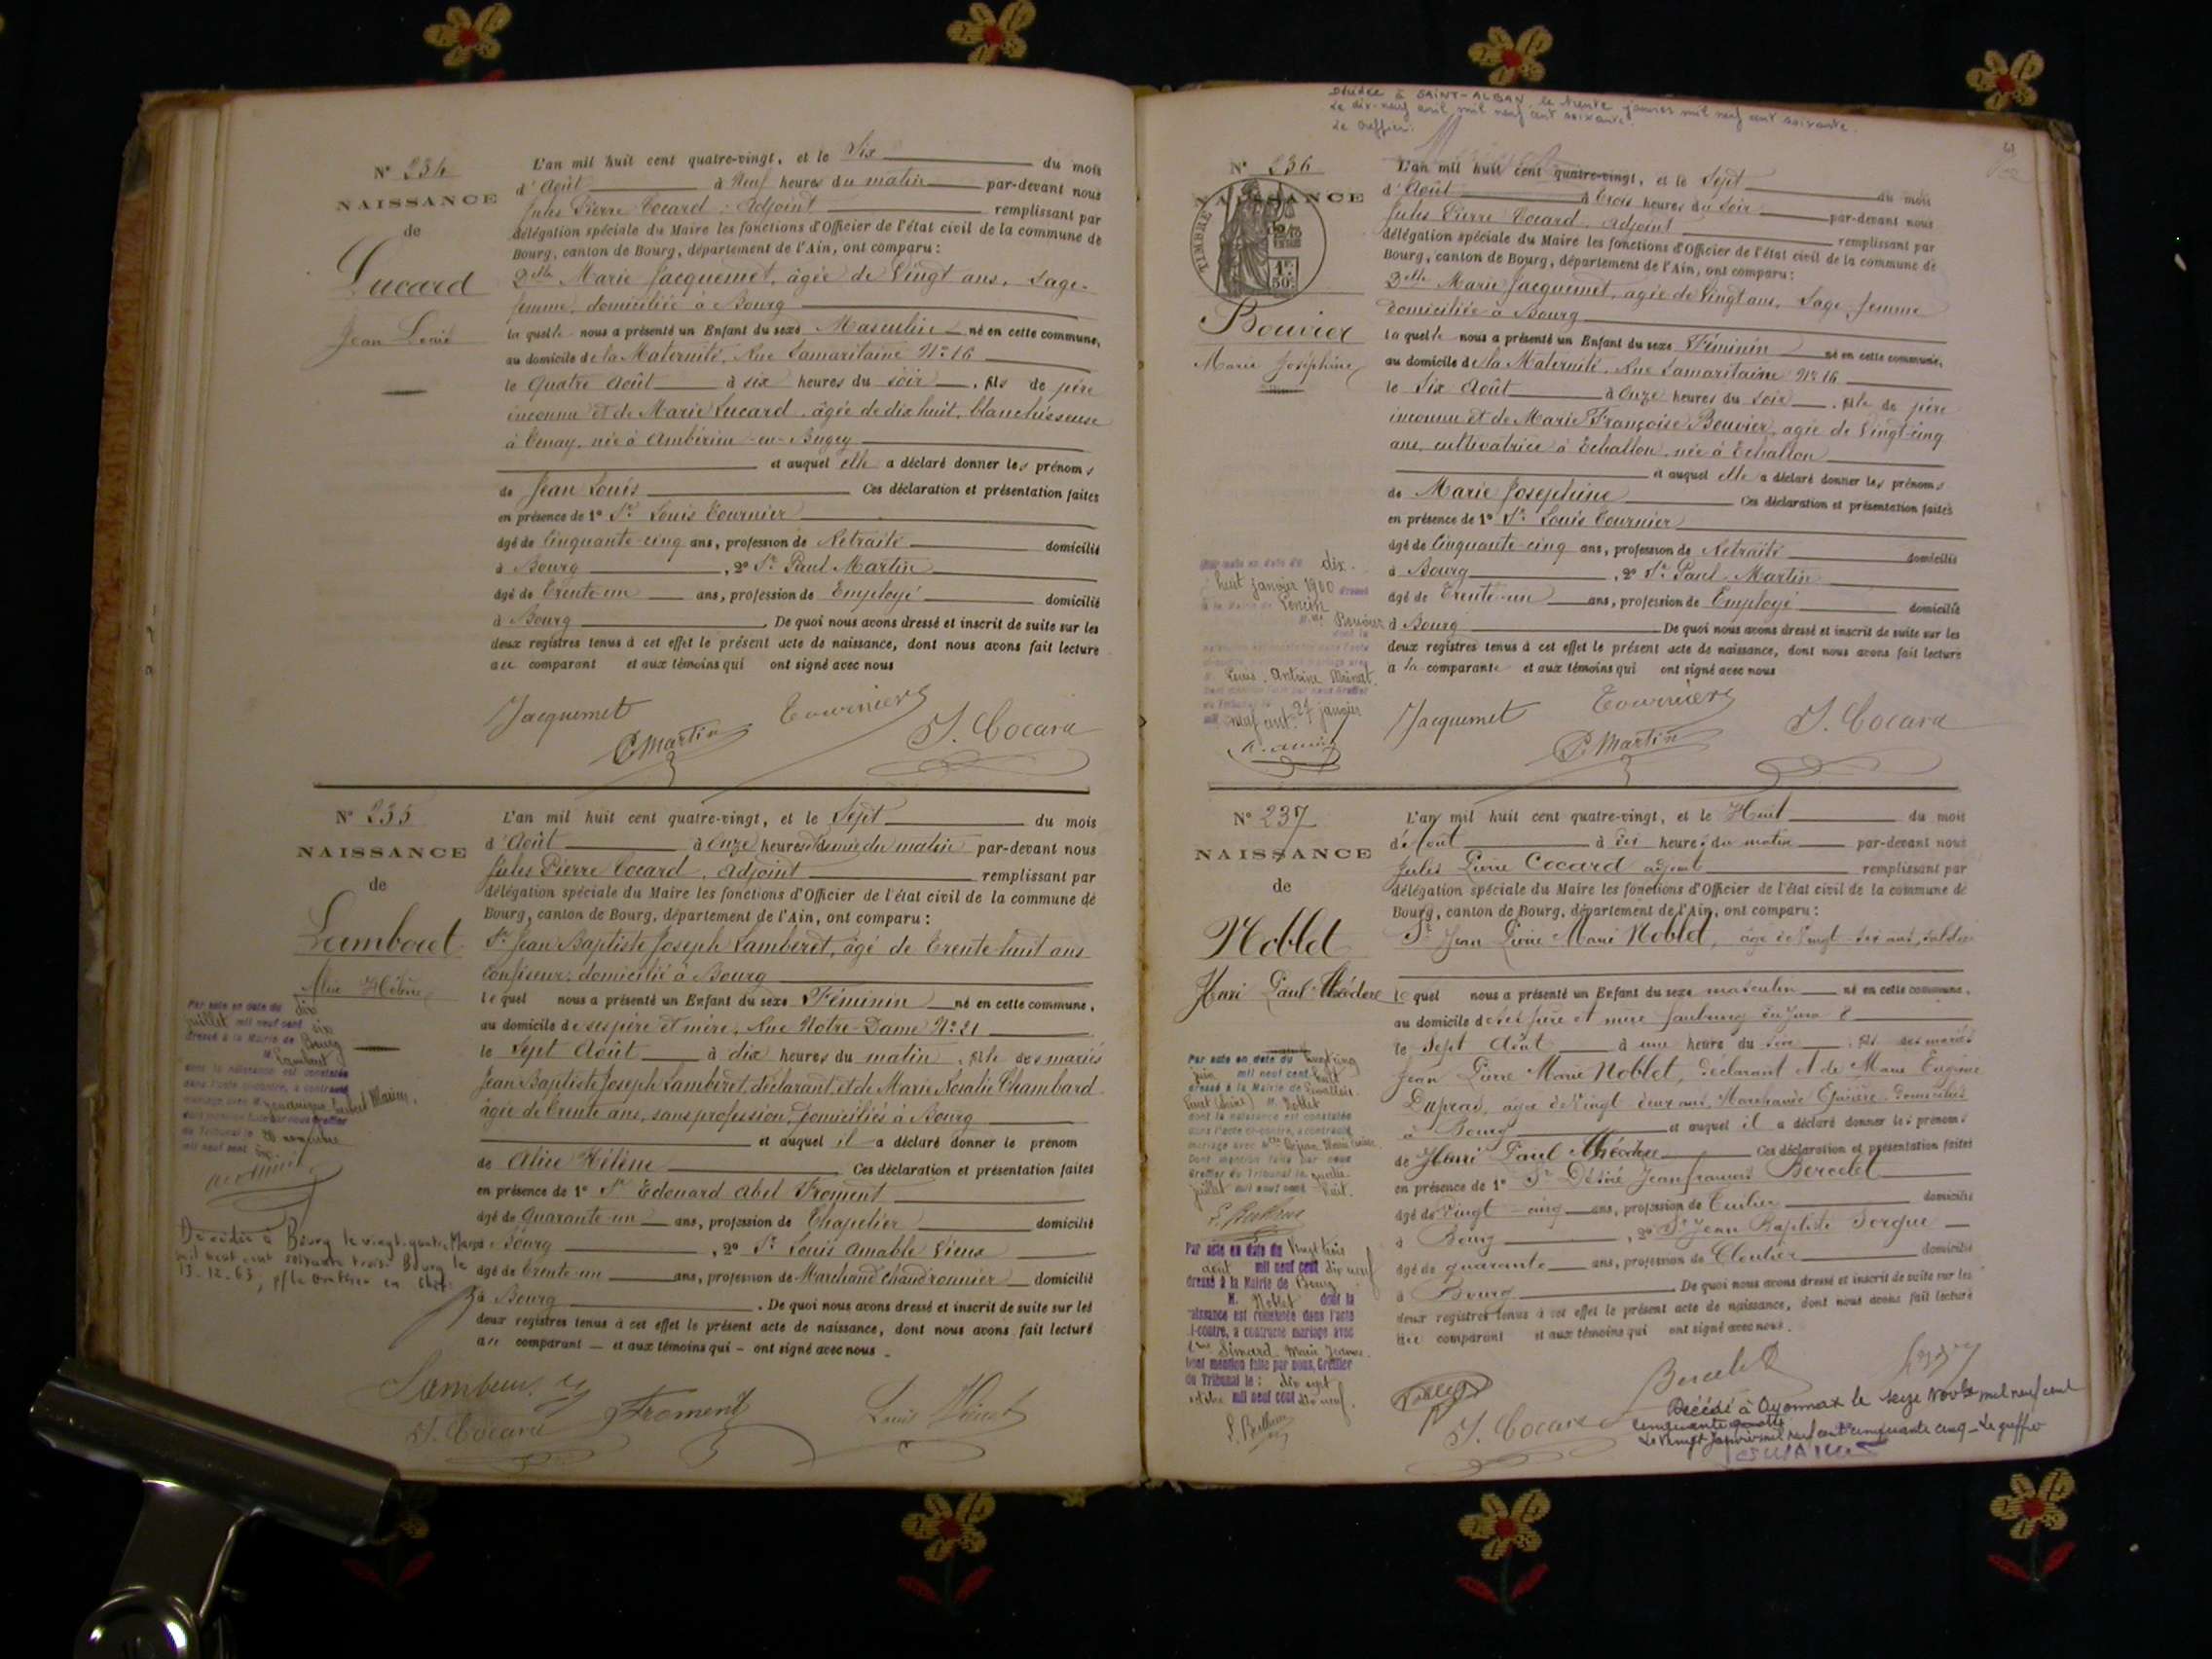 N° 234
NAISSANCE
de
Lucard
Jean Louis
L'an mil huit cent quatre-vingt, et le Six du mois
d'Août à Neuf heures du matin par-devant nous
Jules Pierre Cocard, Adjoint remplissant par
délégation spéciale du Maire les fonctions d'Officier de l'état civil de la commune de
Bourg, canton de Bourg, département de l'Ain, ont comparu :
Delle Marie Jacquemet, âgée de Vingt ans, Sage-
femme, domiciliée à Bourg
laquelle nous a présenté un Enfant du sexe Masculin né en cette commune,
au domicile de la Maternité, Rue Samaritaine N° 16
le Quatre Août à six heures du soir, fils de père
inconnu et de Marie Lucard, âgée de dix huit, blanchisseuse
à Tenay, née à Ambérieu-en-Bugey
et auquel elle a déclaré donner les prénoms
de Jean Louis Ces déclaration et présentation faites
en présence de 1° Sr. Louis Tournier
âgé de Cinquante-cinq ans, profession de Retraité domicilié
à Bourg, 2° Sr. Paul Martin
âgé de Trente-un ans, profession de Employé domicilié
à Bourg. De quoi nous avons dressé et inscrit de suite sur les
deux registres tenus à cet effet le présent acte de naissance, dont nous avons fait lecture
au comparant et aux témoins qui ont signé avec nous
Jacquemet Tournier
P. Martin J. Cocard
N° 235
NAISSANCE
de
Lamberet
Alice Hélène
L'an mil huit cent quatre-vingt, et le Sept du mois
d'Août à Onze heures & demie du matin par-devant nous
Jules Pierre Cocard, Adjoint remplissant par
délégation spéciale du Maire les fonctions d'Officier de l'état civil de la commune de
Bourg, canton de Bourg, département de l'Ain, ont comparu :
Sr. Jean Baptiste Joseph Lamberet, âgé de trente-huit ans
Confiseur, domicilié à Bourg
lequel nous a présenté un Enfant du sexe Féminin né en cette commune,
au domicile de ses père et mère, Rue Notre-Dame N° 21
le Sept Août à dix heures du matin, fille des mariés
Jean Baptiste Joseph Lamberet, déclarant, et de Marie Rosalie Chambard
âgée de trente ans, sans profession, domiciliés à Bourg
et auquel il a déclaré donner le prénom
de Alice Hélène Ces déclaration et présentation faites
en présence de 1° Sr. Edouard Abel Froment
âgé de Quarante-un ans, profession de Chapelier domicilié
à Bourg, 2° Sr. Louis Amable
âgé de trente-un ans, profession de Marchand chaudronnier domicilié
à Bourg. De quoi nous avons dressé et inscrit de suite sur les
deux registres tenus à cet effet le présent acte de naissance, dont nous avons fait lecture
au comparant et aux témoins qui ont signé avec nous
Froment Louis
J. Cocard
Par acte en date du dix
juillet mil neuf cent six
dressé à la Mairie de Bourg
Décédée à Bourg le vingt-quatre Mars
mil neuf cent soixante trois. Bourg le
13-12-63,
Décédée à SAINT-ALBAN, le trente janvier mil neuf cent soixante.
Le dix-neuf avril mil neuf cent soixante.
Le Greffier.
N° 236
NAISSANCE
TIMBRE
Bouvier
Marie Joséphine
L'an mil huit cent quatre-vingt, et le Sept du mois
d'Août à trois heures du soir par-devant nous
Jules Pierre Cocard, Adjoint remplissant par
délégation spéciale du Maire les fonctions d'Officier de l'état civil de la commune de
Bourg, canton de Bourg, département de l'Ain, ont comparu :
Delle Marie Jacquemet, âgée de Vingt ans, Sage femme
domiciliée à Bourg
laquelle nous a présenté un Enfant du sexe Féminin né en cette commune,
au domicile de la Maternité, Rue Samaritaine N° 16
le Six Août à Onze heures du soir, fille de père
inconnu et de Marie Françoise Bouvier, âgée de Vingt-cinq
ans, cultivatrice à Echallon, née à Echallon
et auquel elle a déclaré donner les prénoms
de Marie Josephine Ces déclaration et présentation faites
en présence de 1° Sr. Louis Tournier
âgé de Cinquante-cinq ans, profession de Retraité domicilié
à Bourg, 2° Sr. Paul Martin
âgé de Trente-un ans, profession de Employé domicilié
à Bourg De quoi nous avons dressé et inscrit de suite sur les
deux registres tenus à cet effet le présent acte de naissance, dont nous avons fait lecture
à la comparante et aux témoins qui ont signé avec nous
Jacquemet Tournier
P. Martin J. Cocard
Par acte en date du dix-
huit janvier 1900
N° 237
NAISSANCE
de
Noblet
Henri Paul Théodore
L'an mil huit cent quatre-vingt, et le Huit du mois
d'Août à dix heures du matin par-devant nous
Jules Pierre Cocard adjoint remplissant par
délégation spéciale du Maire les fonctions d'Officier de l'état civil de la commune de
Bourg, canton de Bourg, département de l'Ain, ont comparu :
Sr Jean Pierre Marie Noblet, âgé de Vingt-six ans,
lequel nous a présenté un Enfant du sexe masculin né en cette commune,
au domicile de ses père et mère faubourg du Jura 8
le Sept Août à une heure du soir, fils des mariés
Jean Pierre Marie Noblet, déclarant et de Marie Eugénie
âgée de Vingt deux ans, Marchande Epicière, domiciliés
à Bourg et auquel il a déclaré donner les prénoms
de Henri Paul Théodore Ces déclaration et présentation faites
en présence de 1° Sr Désiré Jean François Bercelet
âgé de Vingt-cinq ans, profession de domicilié
à Bourg, 2° Sr Jean Baptiste
âgé de quarante ans, profession de Cloutier domicilié
à Bourg. De quoi nous avons dressé et inscrit de suite sur les
deux registres tenus à cet effet le présent acte de naissance, dont nous avons fait lecture
au comparant et aux témoins qui ont signé avec nous.
J. Cocard
Par acte en date du vingt cinq
juin mil neuf cent huit
dressé à la Mairie de Levallois-
Perret (Seine) M. Noblet
dont la naissance est constatée
dans l'acte ci-contre, a contracté
Par acte en date du vingt trois
août mil neuf cent dix neuf
dressé à la Mairie de Bourg
M. Noblet dont la
naissance est constatée dans l'acte
ci-contre, a contracté mariage avec
Simard Marie Jeanne.
Dont mention faite par nous, Greffier
du Tribunal le : dix sept
octobre mil neuf cent dix neuf.
Décédé à Oyonnax le seize Novbre mil neuf cent
cinquante quatre.
Le vingt Janvier mil neuf cent cinquante cinq - Le greffier